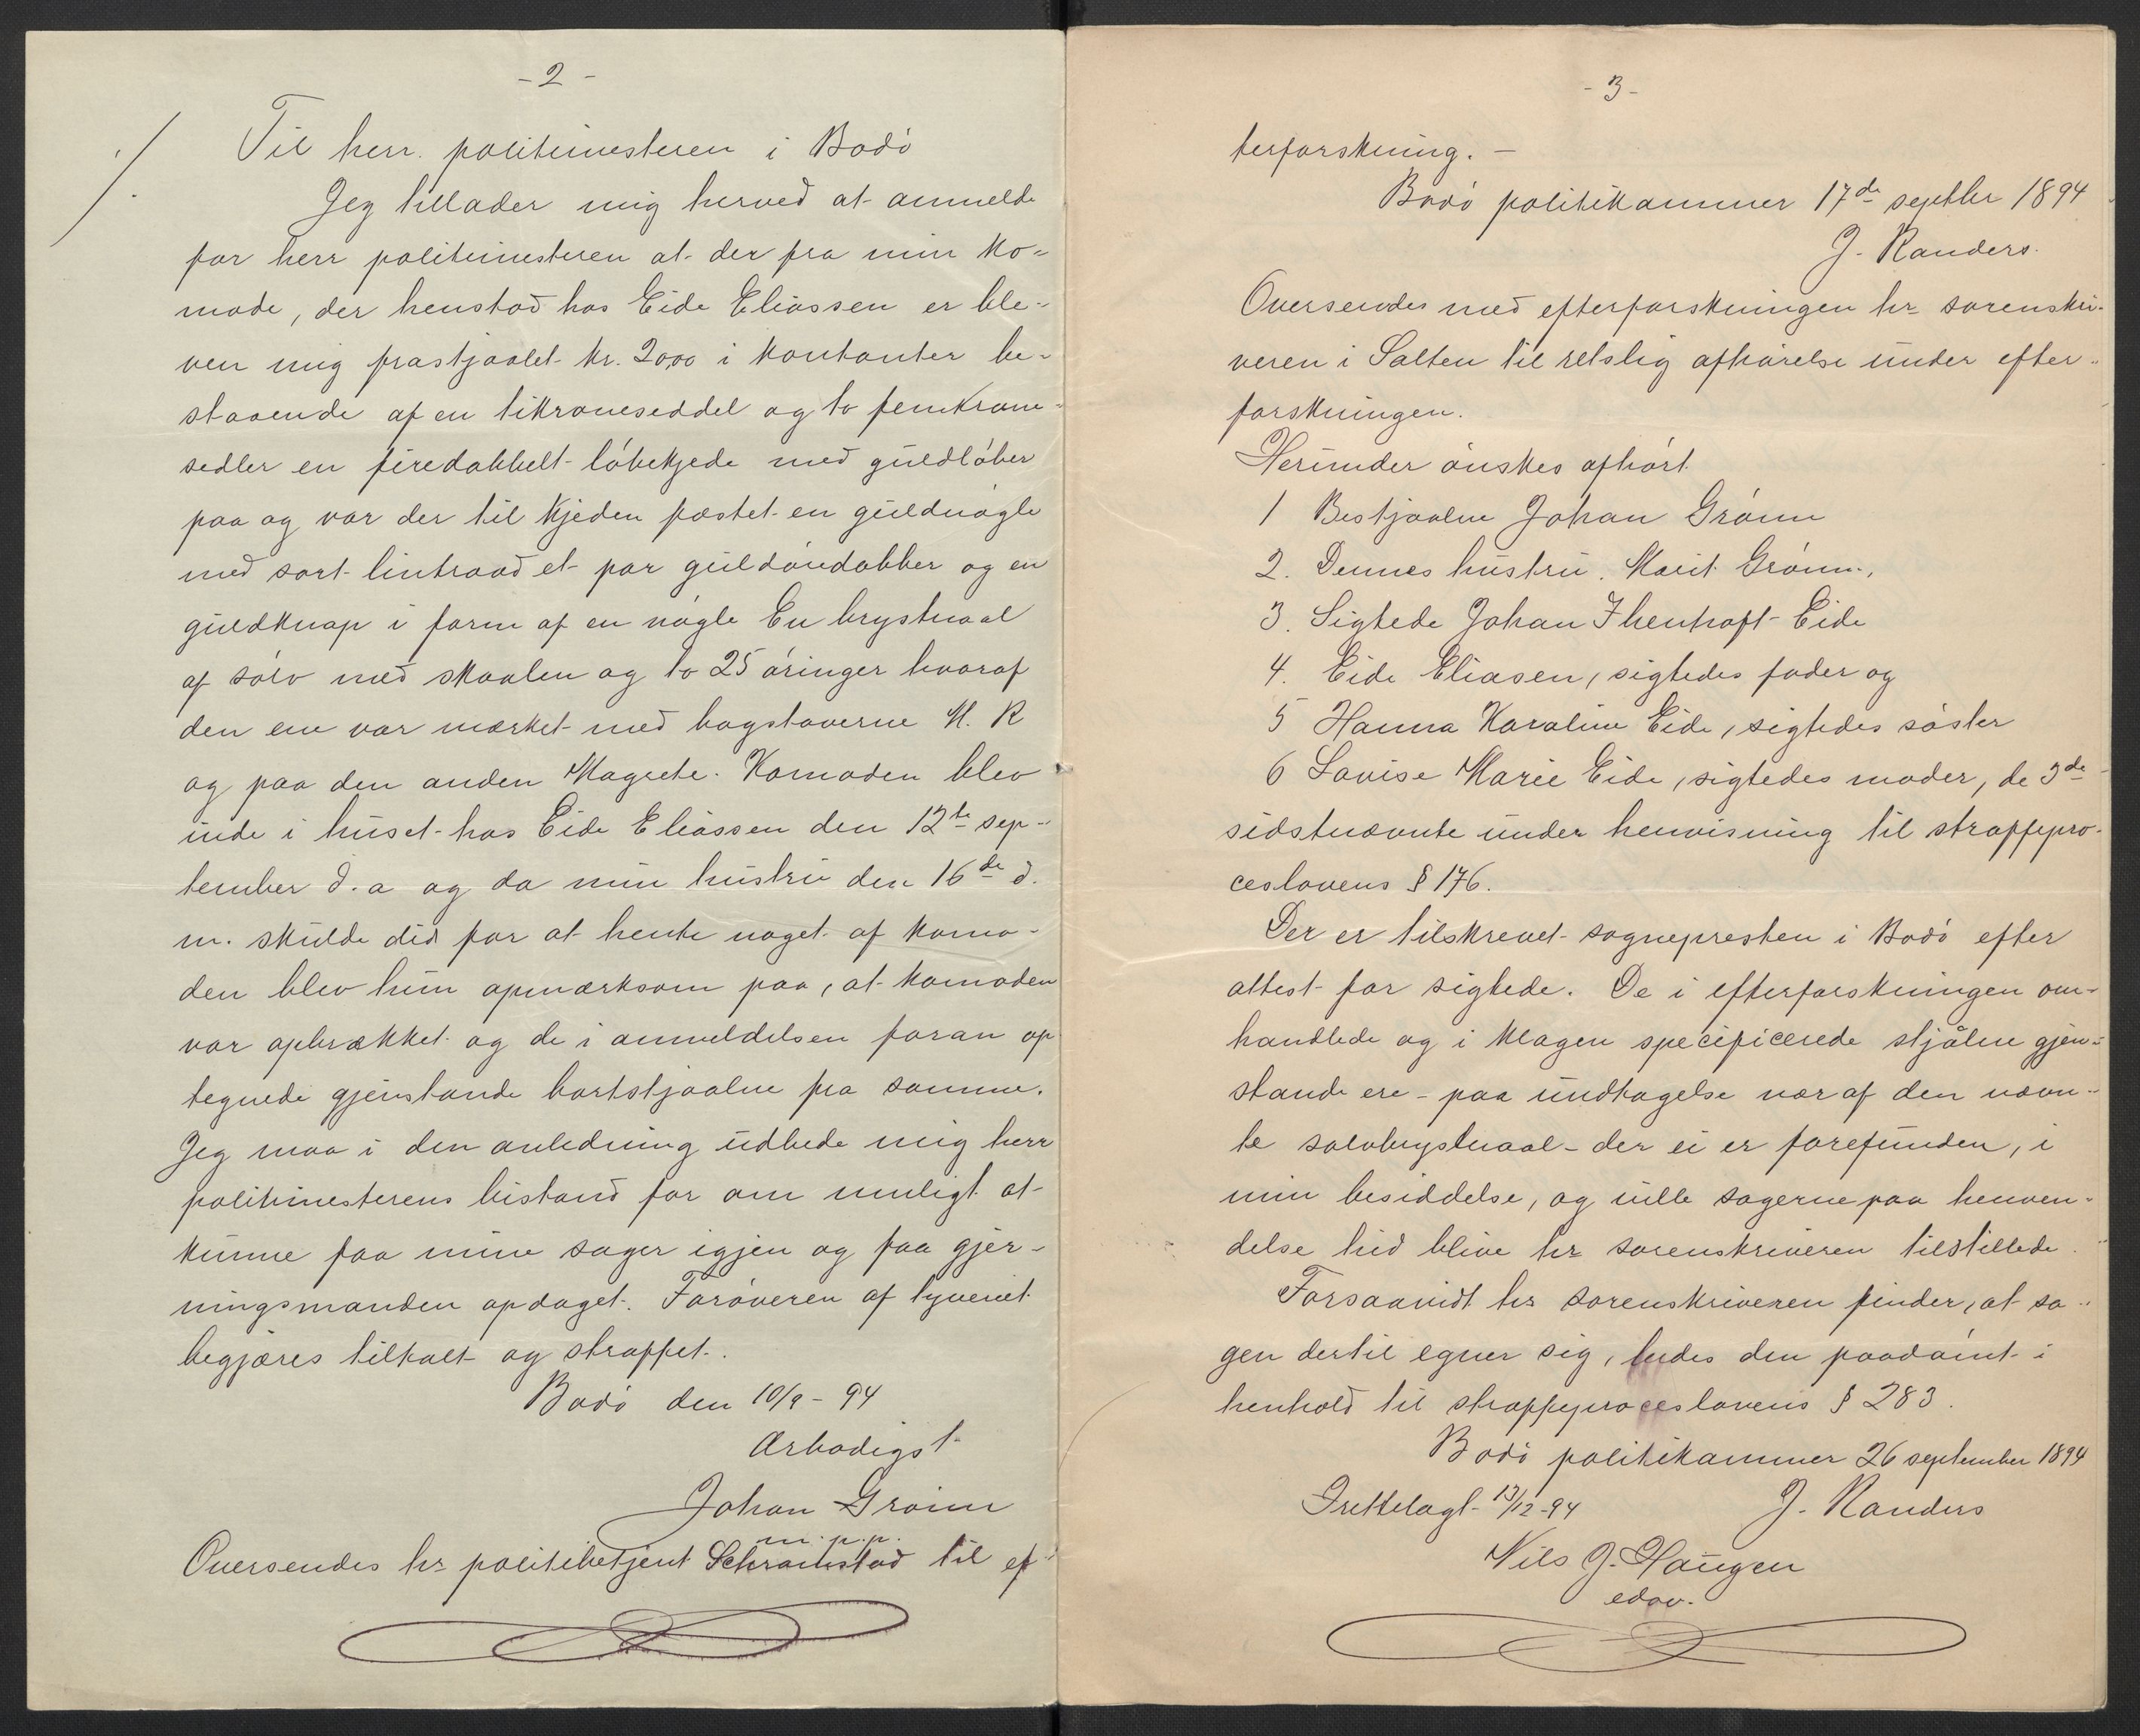 - 2 -
Til herr. politimesteren i Bodö
Jeg tillader mig herved at anmelde
for herr politimesteren at der fra min ko-
mode, der henstod hos Eide Eliassen er ble-
ven mig frastjaalet kr. 20,00 i kontanter be-
staaende af en tikroneseddel og to femkrone-
sedler en firedobbelt löbekjede med guldlöber
paa og var der til kjeden fæstet en guldnögle
med sort lintraad et par guldöredobber og en
guldknap i form af en nögle En brystnaal
af sölv med skaalen og to 25 öringer hvoraf
den ene var mærket med bogstaverne M. R
og paa den anden Magrete. Komoden blev
inde i huset hos Eide Eliassen den 12te sep-
tember d. a og da min hustru den 16de d.
m. skulde did for at hente noget af komo-
den blev hun opmærksom paa, at komoden
var opbrækket og de i anmeldelsen foran op
tegnede gjenstande bortstjaalne fra samme.
Jeg maa i den anledning udbede mig herr
politimesterens bistand for om muligt at
kunne faa mine sager igjen og faa gjer-
ningsmanden opdaget. Foröveren af tyveriet
begjæres tiltalt og straffet.
Bodö den 10/9 - 94
Ærbödigst
Johan Grönn
m. p. p.
Oversendes hr politibetjent Schramstad til ef-
- 3 -
terforskning. -
Bodö politikammer 17de septbr 1894
J. Randers.
Oversendes med efterforskningen hr sorenskri-
veren i Salten til retslig afhörelse under efter-
forskningen.
Herunder önskes afhört
1 Bestjaalne Johan Grönn
2. Dennes hustru. Marit Grönn,
3. Sigtede Johan Ihenhoft Eide
4. Eide Eliasen, sigtedes fader og
5 Hanna Karoline Eide, sigtedes söster
6 Lovise Marie Eide, sigtedes moder, de 3de
sidstnævnte under henvisning til straffepro-
ceslovens § 176.
Der er tilskrevet sognepresten i Bodö efter
attest for sigtede. De i efterforskningen om-
handlede og i klagen specificerede stjålne gjen-
stande ere - paa undtagelse nær af den nævn-
te sölvbrystnaal - der ei er forefunden, i
min besiddelse, og ville sagerne paa henven-
delse hid blive hr sorenskriveren tilstillede.
Forsaavidt hr sorenskriveren finder, at sa-
gen dertil egner sig, bedes den paadömt i
henhold til straffeproceslovens § 283.
Bodö politikammer 26 september 1894
Frettelagt 13/12-94 J. Randers
Nils J. Haugen
edsv.